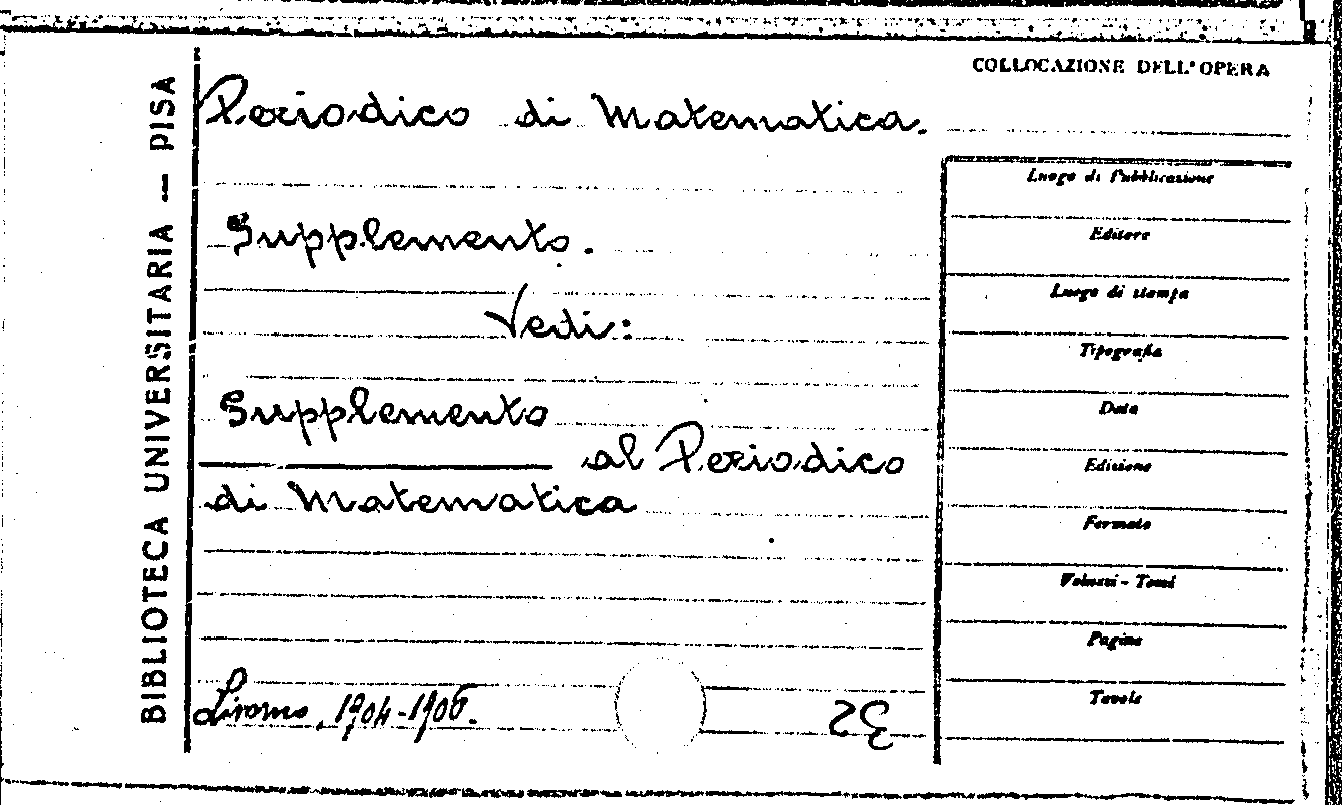 BIBLIOTECA UNIVERSITARIA — PISA
COLLOCAZIONE DELL'OPERA
Periodico di Matematica.
Supplemento.
Vedi:
Supplemento
al Periodico
di Matematica
Livorno, 1904-1906.
Luogo di Pubblicazione
Editore
Luogo di stampa
Tipografia
Data
Edizione
Formato
Volumi - Tomi
Pagine
Tavole